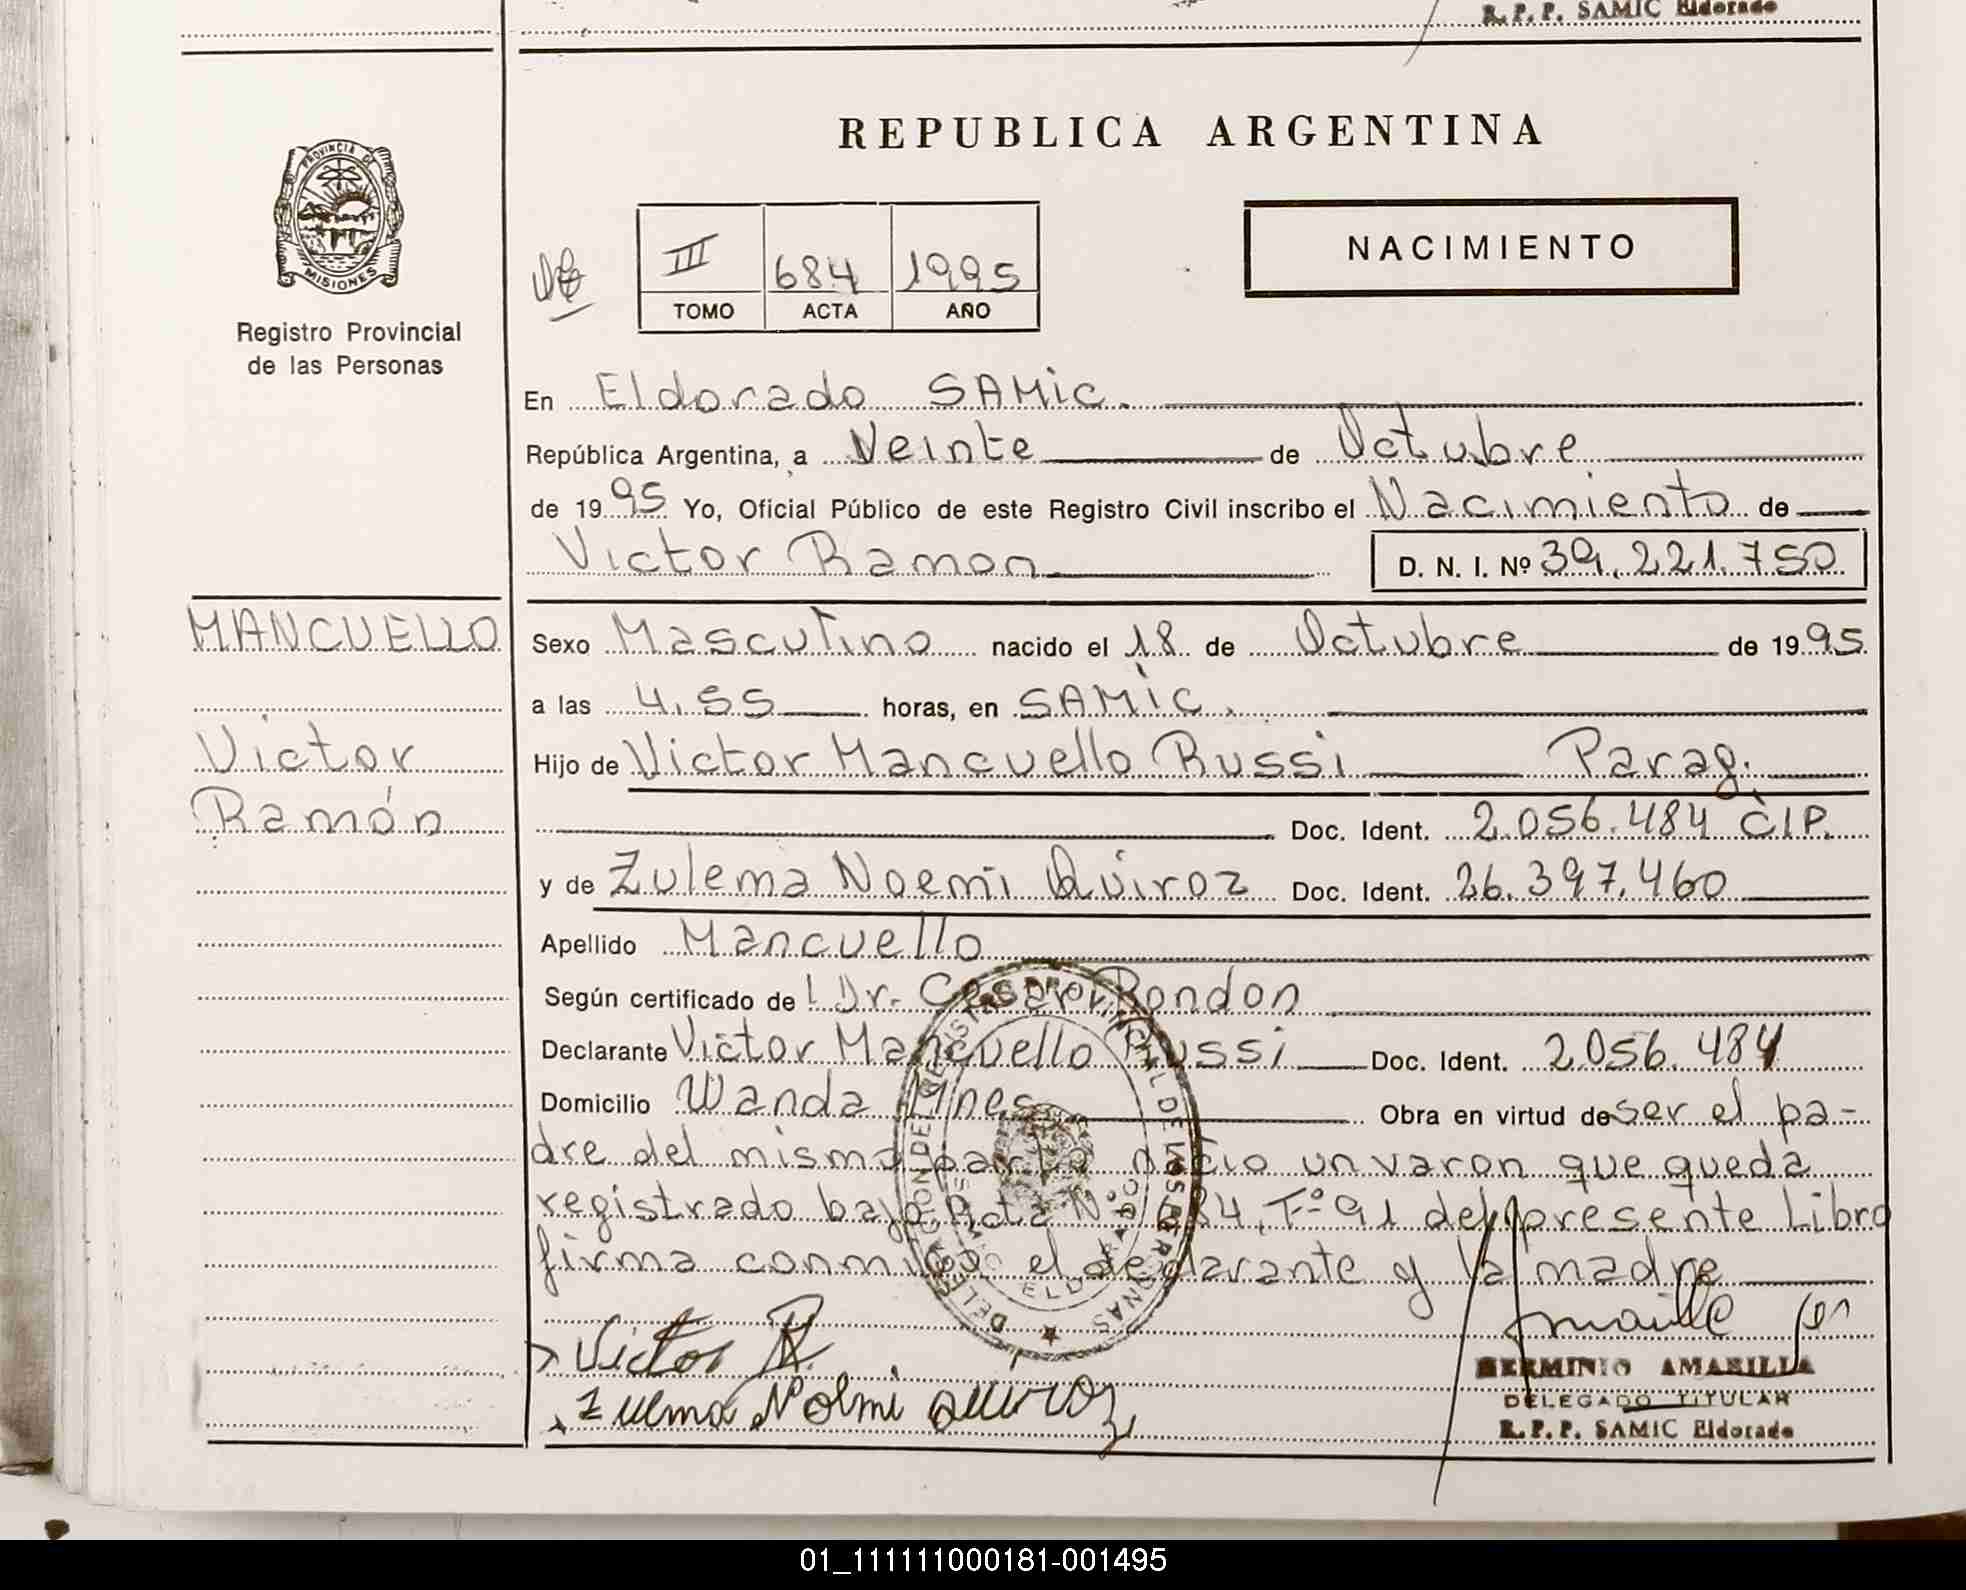 R. P. P. SAMIC Eldorado
REPUBLICA ARGENTINA
PROVINCIA DE
MISIONES
Registro Provincial
de las Personas
III 684 1995
TOMO ACTA AÑO
NACIMIENTO
En Eldorado SAMic.
República Argentina, a Veinte de Octubre
de 1995 Yo, Oficial Público de este Registro Civil inscribo el Nacimiento de
Victor Ramon D. N. I. Nº 39.221.750
MANCUELLO
Victor
Ramón
Sexo Masculino nacido el 18 de Octubre de 1995
a las 4.55 horas, en SAMiC.
Hijo de Victor Mancuello Russi Parag.
Doc. Ident. 2.056.484 CIP.
y de Zulema Noemi Quiroz Doc. Ident. 26.397.460
Apellido Mancuello
Según certificado de Dr. Cesar Rondon
Declarante Victor Mancuello Russi Doc. Ident. 2.056.484
Domicilio Wanda Mnes Obra en virtud de ser el pa-
dre del mismo parto nacio un varon que queda
registrado bajo Acta Nº 684, Tº 91 del presente Libro
firma conmigo el declarante y la madre
Victor R.
Zulma Noemi Quiroz
HERMINIO AMARILLA
DELEGADO TITULAR
R. P. P. SAMIC Eldorado
01_111111000181-001495